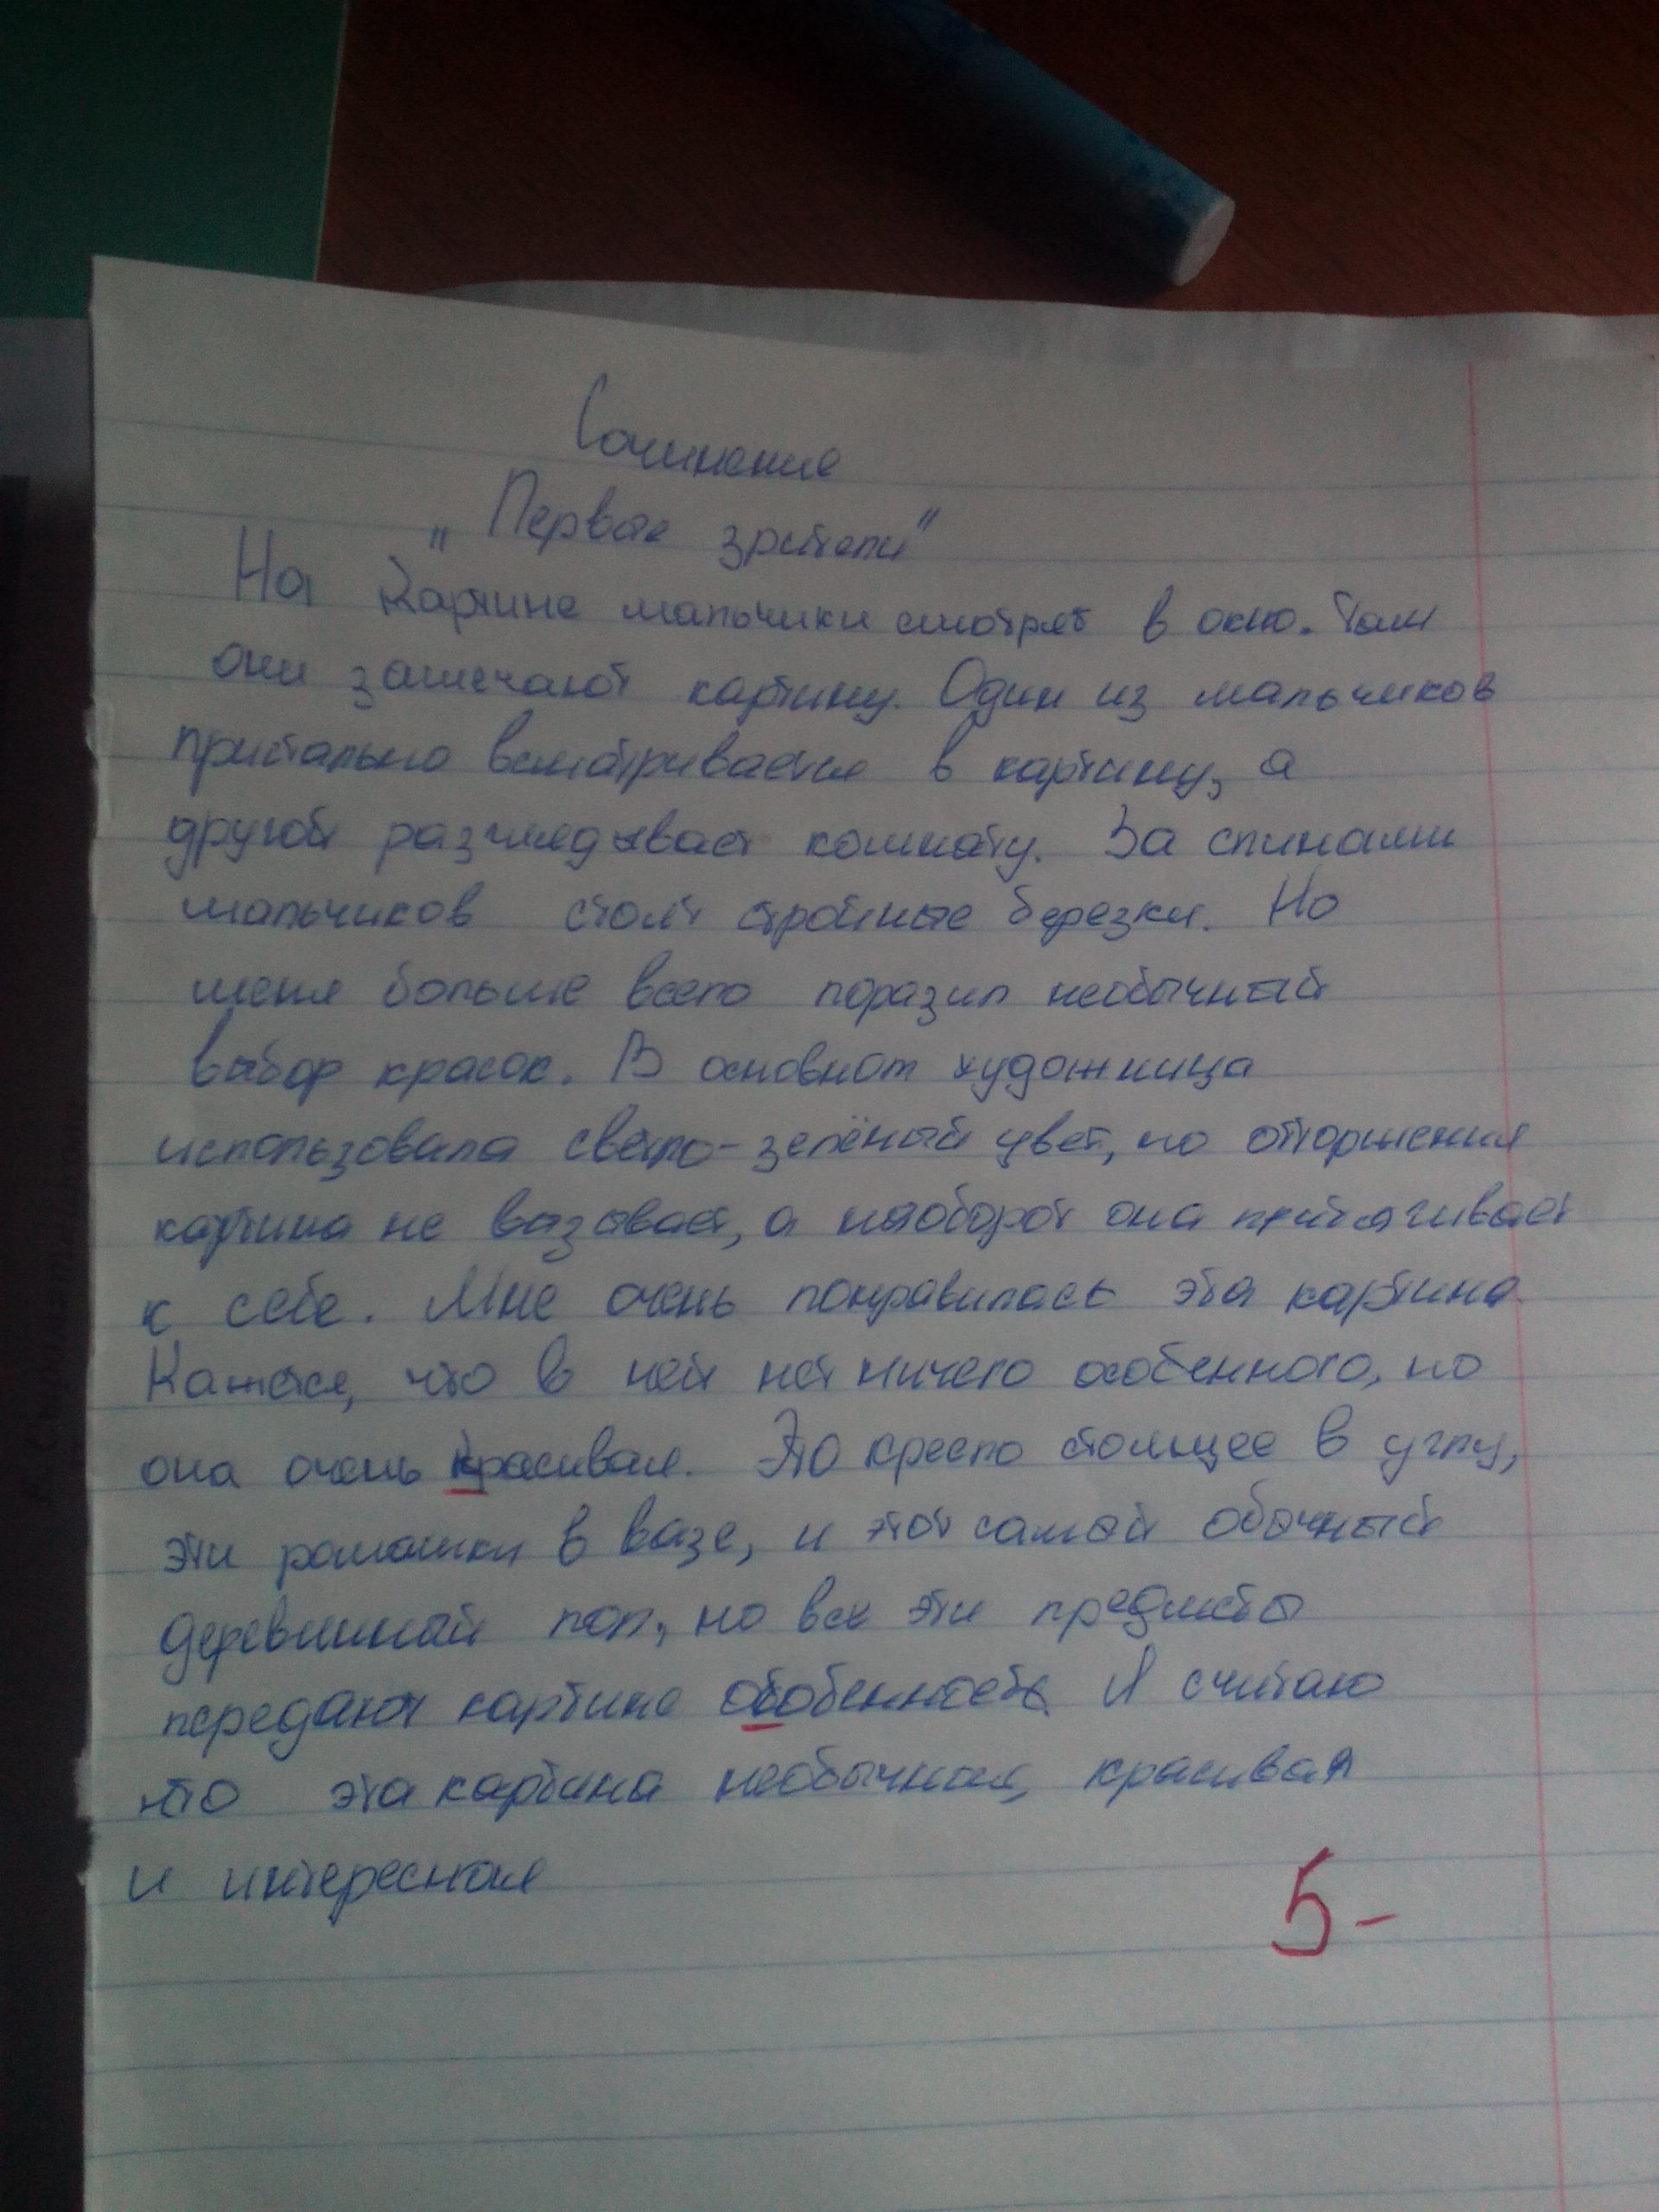 Сочинение
„Первые зрители"
На картине мальчики смотрят в окно. Там
они замечают картину. Один из мальчиков
пристально всматривается в картину, а
другой разглядывает комнату. За спинами
мальчиков стоят стройные березки. Но
меня больше всего поразил необычный
выбор красок. В основном художница
использовала светло-зелёный цвет, но отторжения
картина не вызывает, а наоборот она притягивает
к себе. Мне очень понравилась эта картина
Кажется, что в ней нет ничего особенного, но
она очень красивая. Это кресло стоящее в углу,
эти ромашки в вазе, и этот самый обычный
деревянный пол, но все эти предметы
передают картине особенность. Я считаю
что эта картина необычная, красивая
и интересная
5-